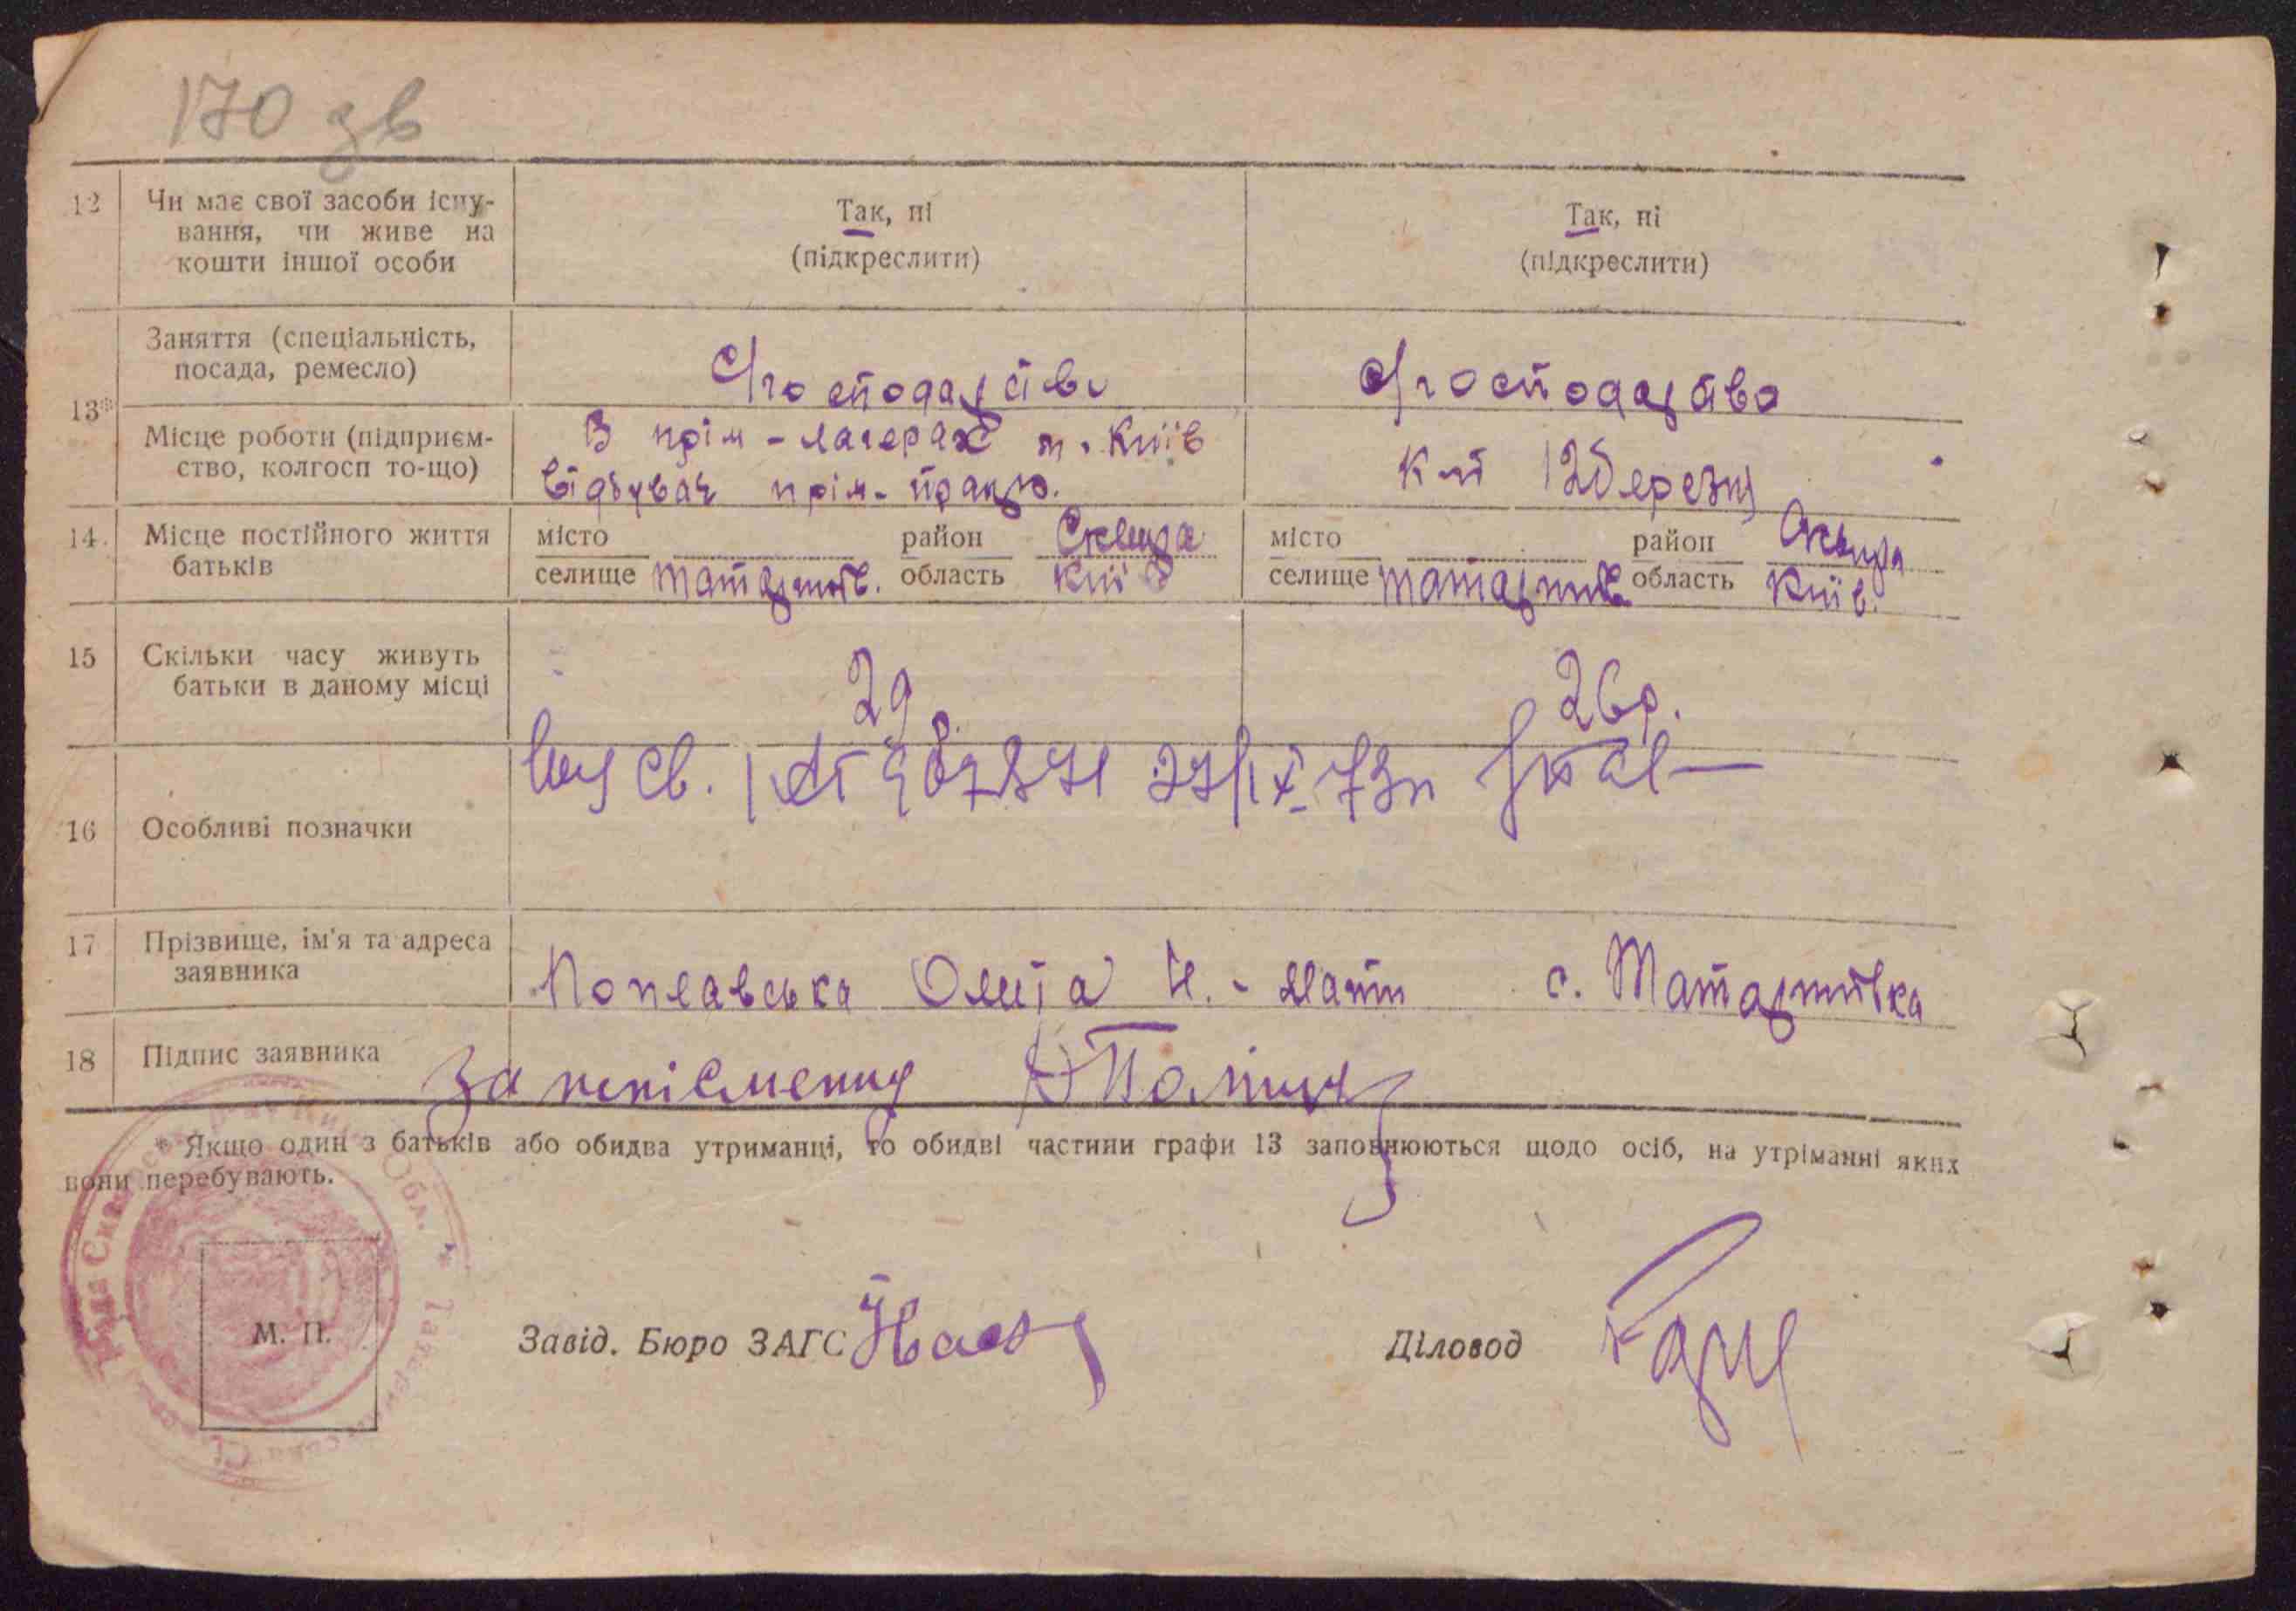 170 зв
12 Чи має свої засоби існу-
вання, чи живе на
кошти іншої особи
Так, ні
(підкреслити)
Так, ні
(підкреслити)
13*
Заняття (спеціальність,
посада, ремесло)
Господарство
Господарство
Місце роботи (підприєм-
ство, колгосп то-що)
В прім-лагерах м. Київ
відбуває прім. працю.
К-п 12 Березня
14. Місце постійного життя
батьків
місто
селище Татаринів.
район Сквира
область Київ
місто
селище Татаринів
район Сквира
область Київ.
15 Скільки часу живуть
батьки в даному місці
29 р.
26 р.
16 Особливі позначки
св. 27/IX-73
17 Прізвище, ім'я та адреса
заявника
Поплавська - мати с. Татаринівка
18 Підпис заявника
За неписьменну
* Якщо один з батьків або обидва утриманці, то обидві частини графи 13 заповнюються щодо осіб, на утриманні яких
вони перебувають.
М. П.
Завід. Бюро ЗАГС
Діловод